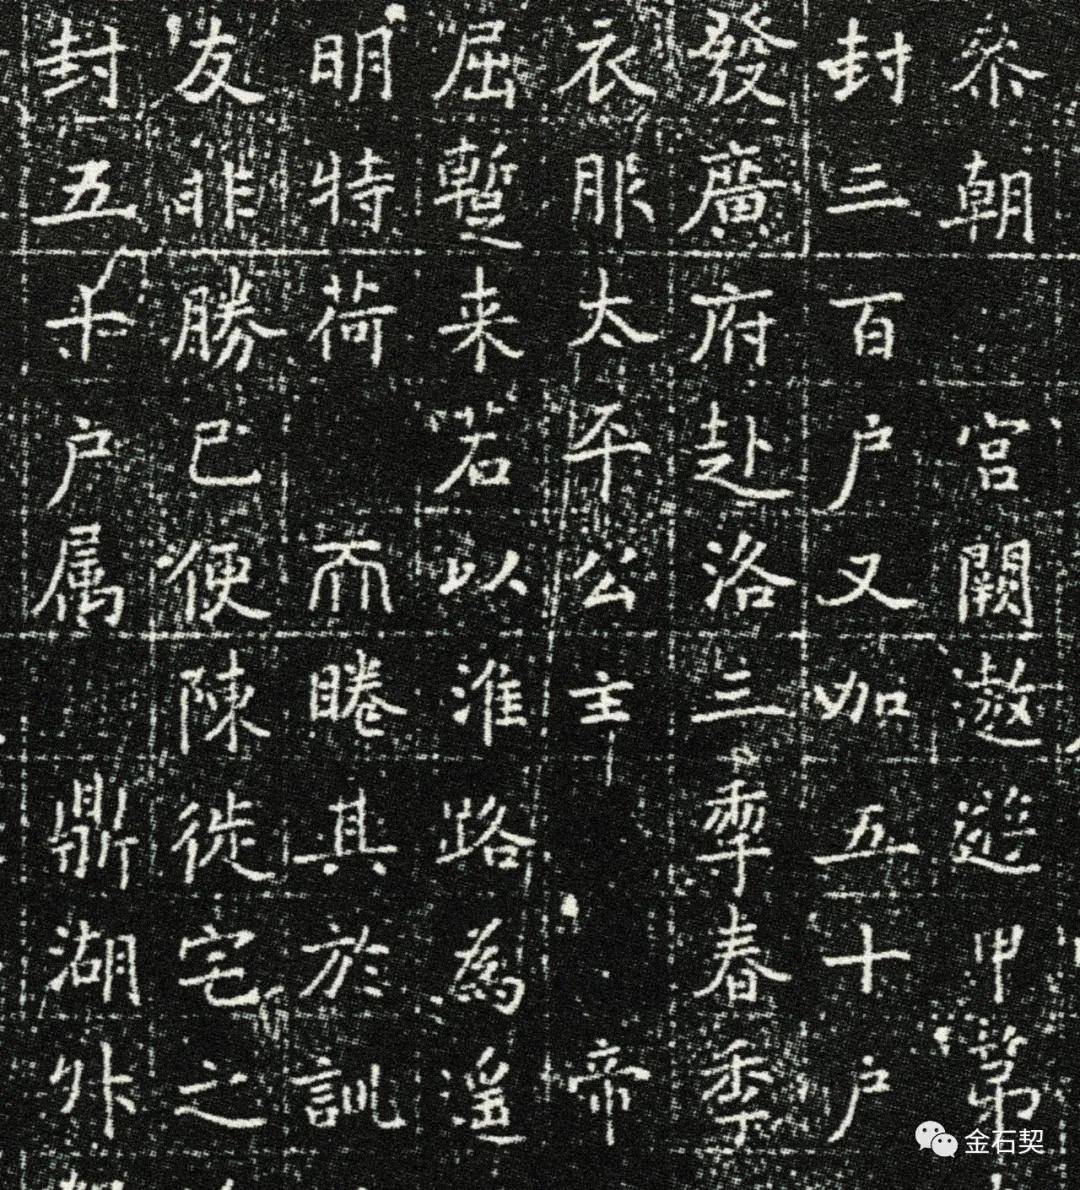 叅朝宮闕遨遊甲第
封三百户又加五十户
發廣府赴洛三季春季
衣服太平公主帝
屈蹔来若以淮路為遥
明特荷而睠其於訓
友非勝已便陳徙宅之
封五十户属鼎湖外
金石契